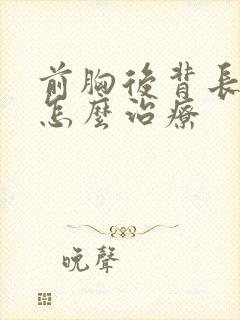 前胸後背長
怎麼治療
晚聲